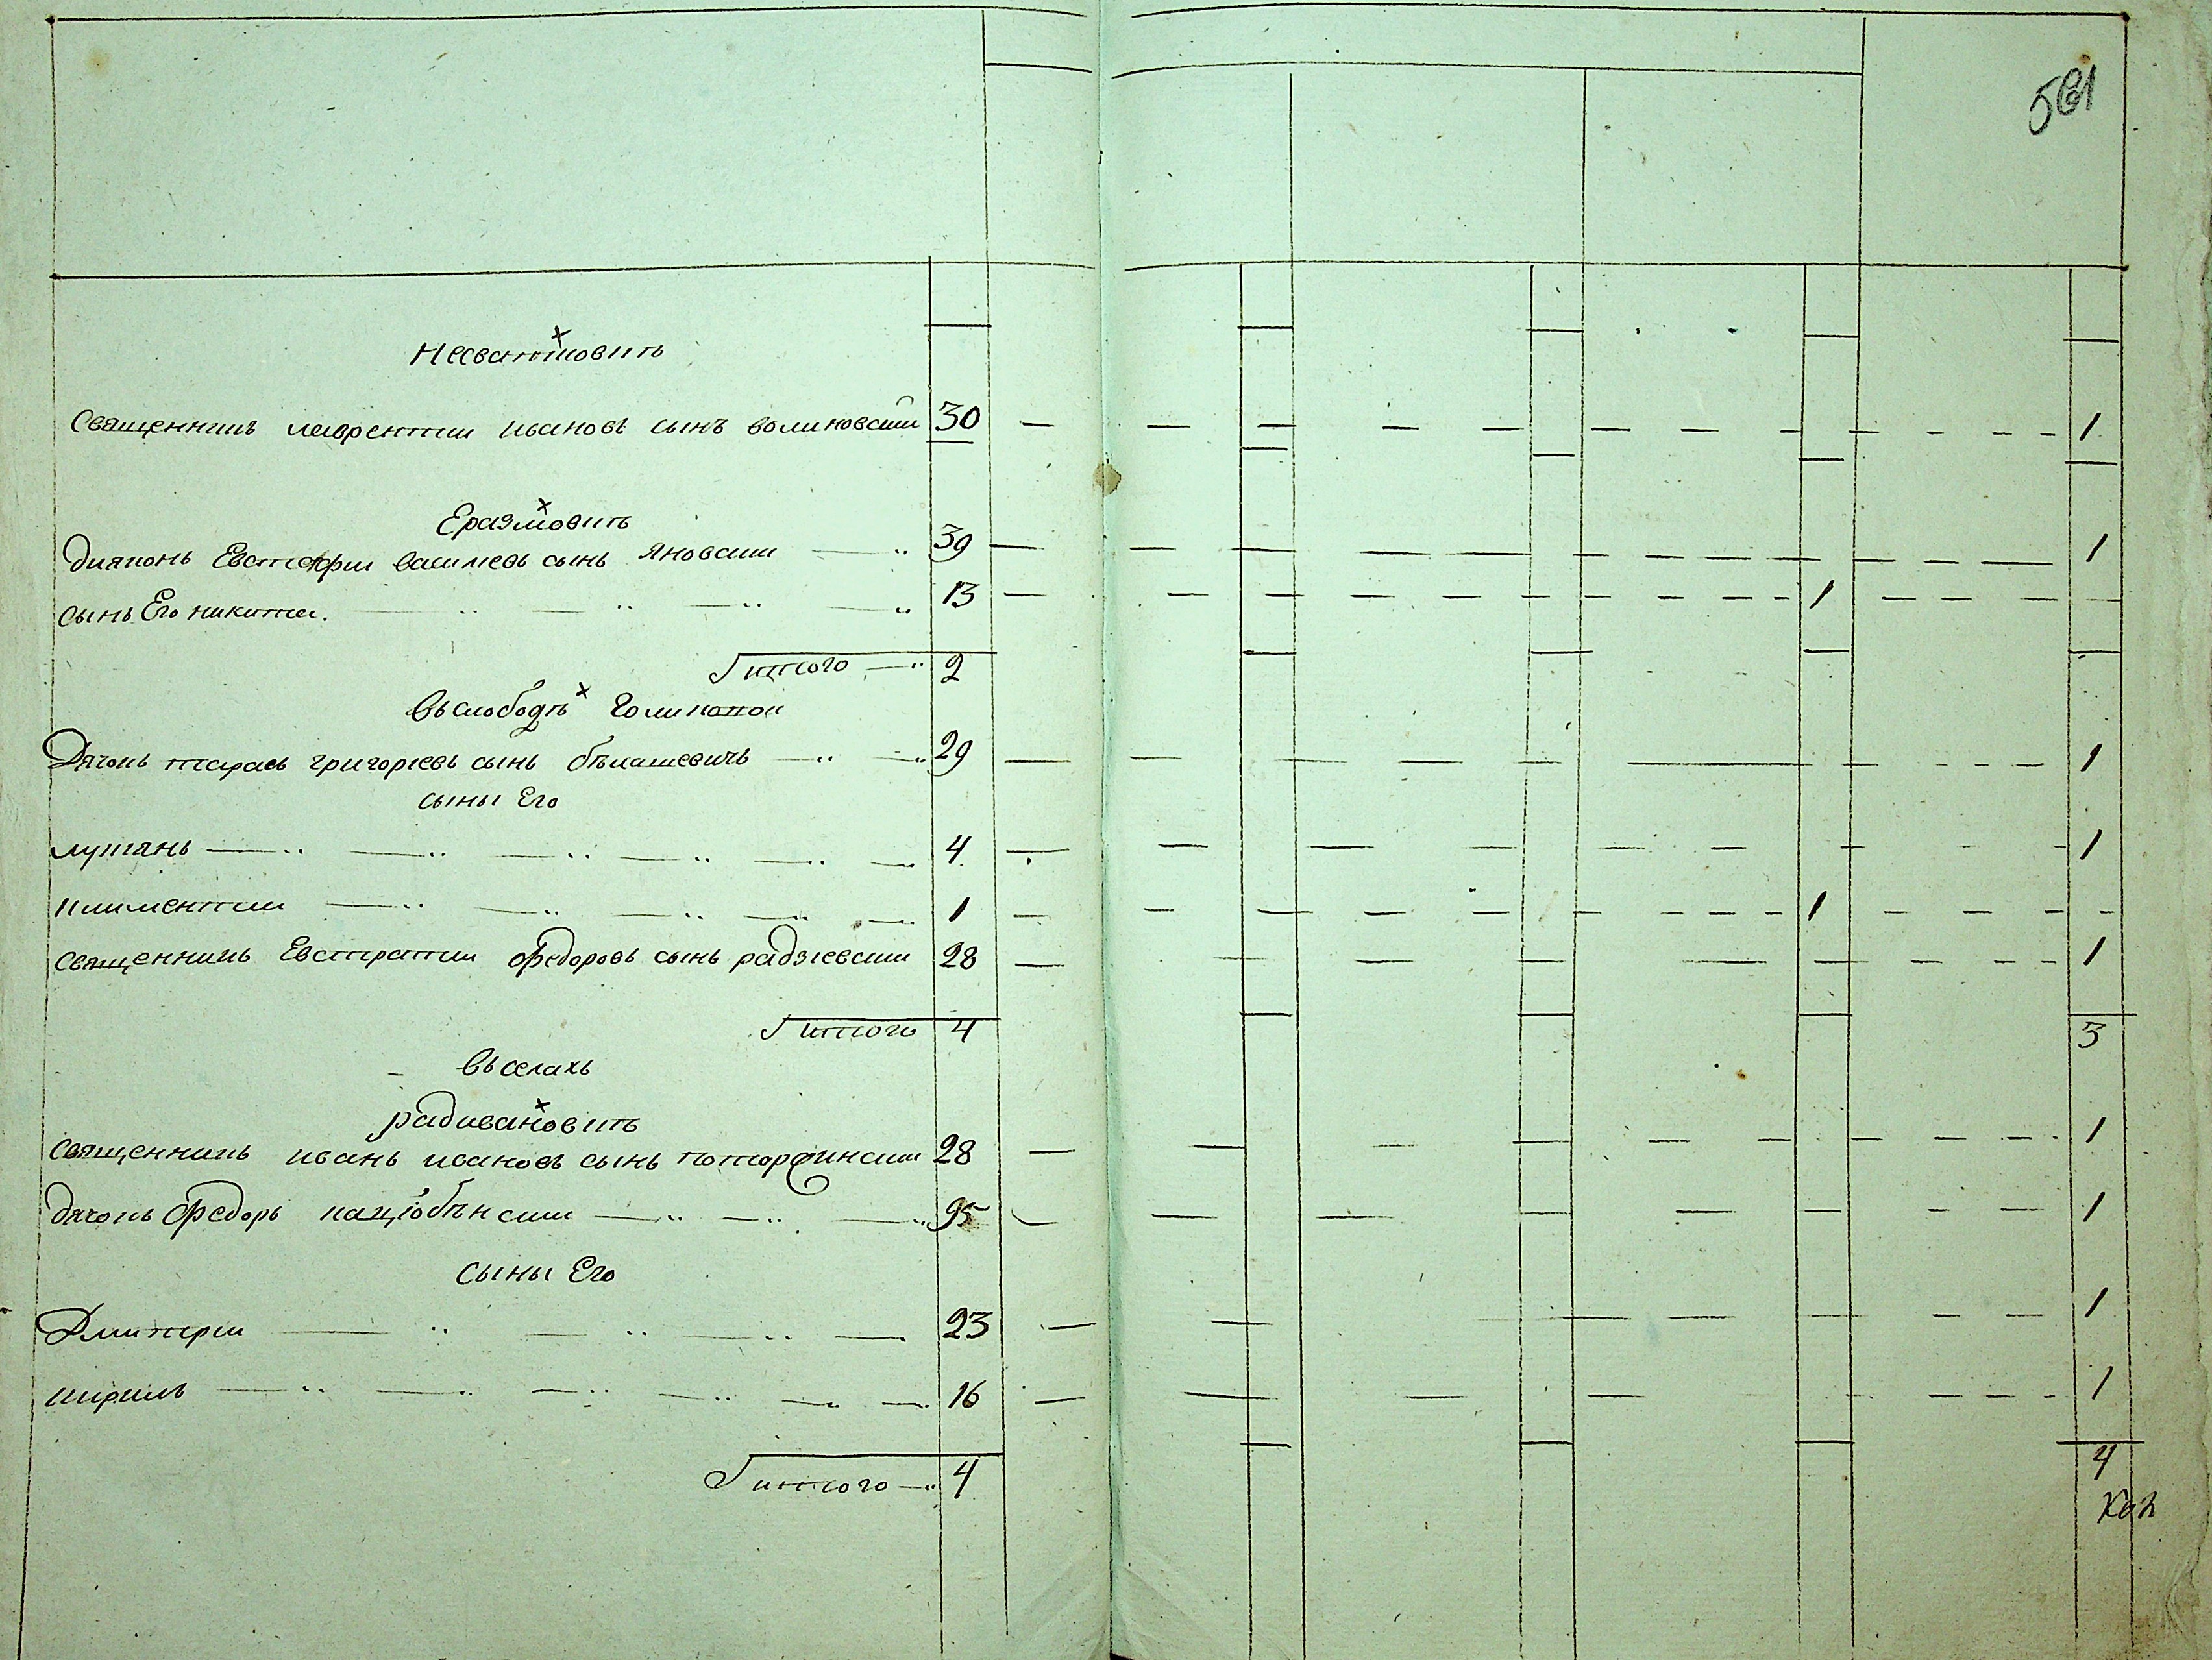 561
Несватковцѣ
Священникъ лаврентии ивановъ сынъ волиновскии 30 1
Еразмовцѣ
диаконъ Евстафии василевъ сынъ Яновскии 39 1
сынъ Его никита. 13 1
итого 2
Въ слободѣ Голикопои
Дячокъ тарасъ григориевъ сынъ бѣлашевичъ 29 1
сыны Его
лукианъ 4 1
климентии 1 1
священникъ Евстратии федоровъ сынъ радзиевскии 28 1
итого 4 3
Въ селахъ
радивановцѣ
священникъ иванъ ивановъ сынъ 28 1
дячокъ Федоръ 95 1
сыны Его
Дмитрии 23 1
кирилъ 16 1
итого 4 4